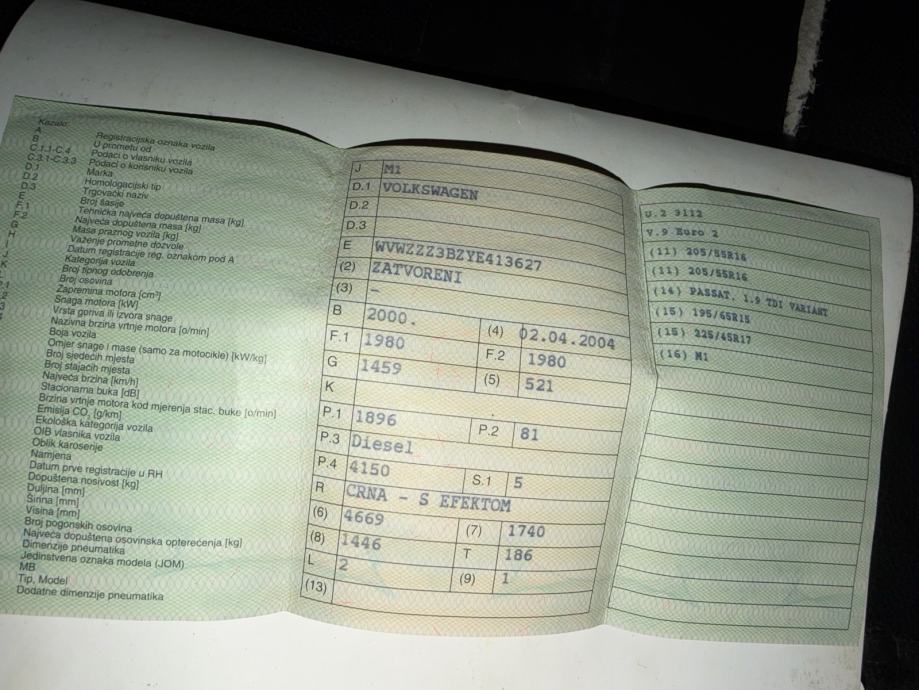 Kazalo:
A Registracijska oznaka vozila
B U prometu od
C.1.1-C.4 Podaci o vlasniku vozila
C.3.1-C.3.3 Podaci o korisniku vozila
D.1 Marka
D.2 Homologacijski tip
D.3 Trgovački naziv
E Broj šasije
F.1 Tehnička najveća dopuštena masa [kg]
F.2 Najveća dopuštena masa [kg]
G Masa praznog vozila [kg]
H Važenje prometne dozvole
I Datum registracije reg. oznakom pod A
J Kategorija vozila
K Broj tipnog odobrenja
Broj osovina
Zapremina motora [cm³]
Snaga motora [kW]
Vrsta goriva ili izvora snage
Nazivna brzina vrtnje motora [o/min]
Boja vozila
Omjer snage i mase (samo za motocikle) [kW/kg]
Broj sjedećih mjesta
Broj stajaćih mjesta
Najveća brzina [km/h]
Stacionarna buka [dB]
Brzina vrtnje motora kod mjerenja stac. buke [o/min]
Emisija CO₂ [g/km]
Ekološka kategorija vozila
OIB vlasnika vozila
Oblik karoserije
Namjena
Datum prve registracije u RH
Dopuštena nosivost [kg]
Duljina [mm]
Širina [mm]
Visina [mm]
Broj pogonskih osovina
Najveća dopuštena osovinska opterećenja [kg]
Dimenzije pneumatika
Jedinstvena oznaka modela (JOM)
MB
Tip, Model
Dodatne dimenzije pneumatika
J M1
D.1 VOLKSWAGEN
D.2
D.3
E WVWZZZ3BZYE413627
(2) ZATVORENI
(3) –
B 2000. (4) 02.04.2004
F.1 1980 F.2 1980
G 1459 (5) 521
K
P.1 1896 P.2 81
P.3 Diesel
P.4 4150 S.1 5
R CRNA - S EFEKTOM
(6) 4669 (7) 1740
(8) 1446 T 186
L 2 (9) 1
(13)
U.2 3112
V.9 Euro 2
(11) 205/55R16
(11) 205/55R16
(14) PASSAT, 1.9 TDI VARIANT
(15) 195/65R15
(15) 225/45R17
(16) M1